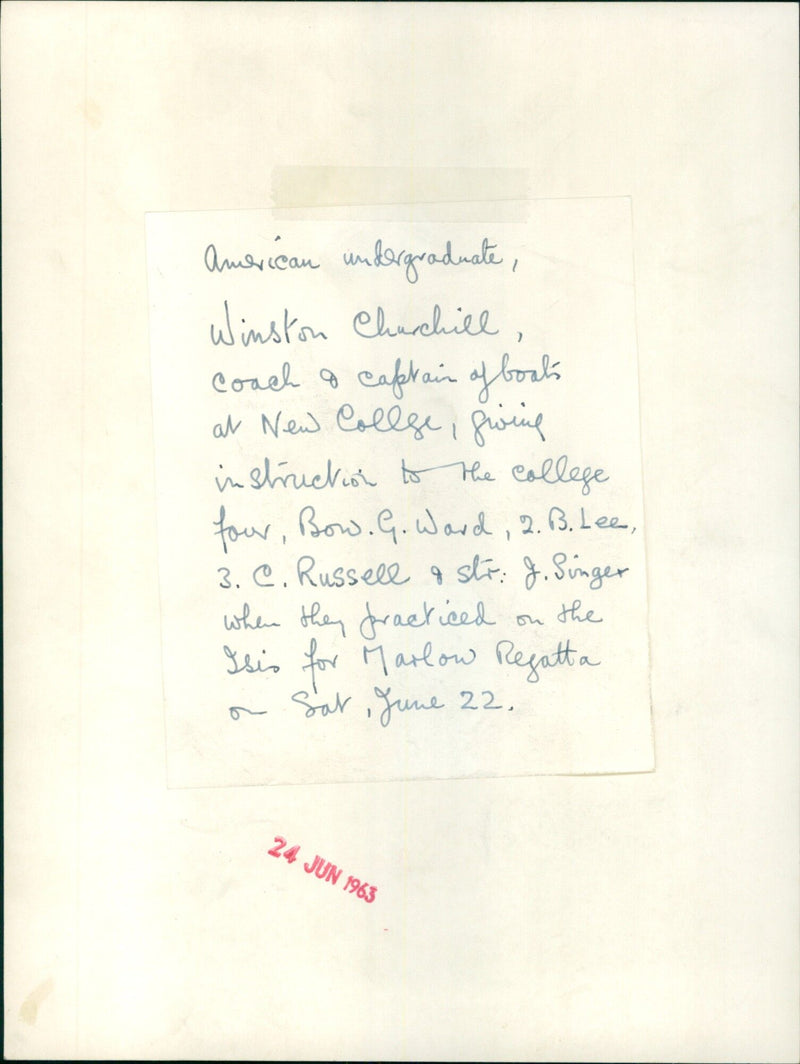 American undergraduate,
Winston Churchill,
coach & captain of boats
at New College, giving
instruction to the college
four, Bow. G. Ward, 2. B. Lee,
3. C. Russell & str: J. Singer
when they practiced on the
Isis for Marlow Regatta
on Sat, June 22.
24 JUN 1963